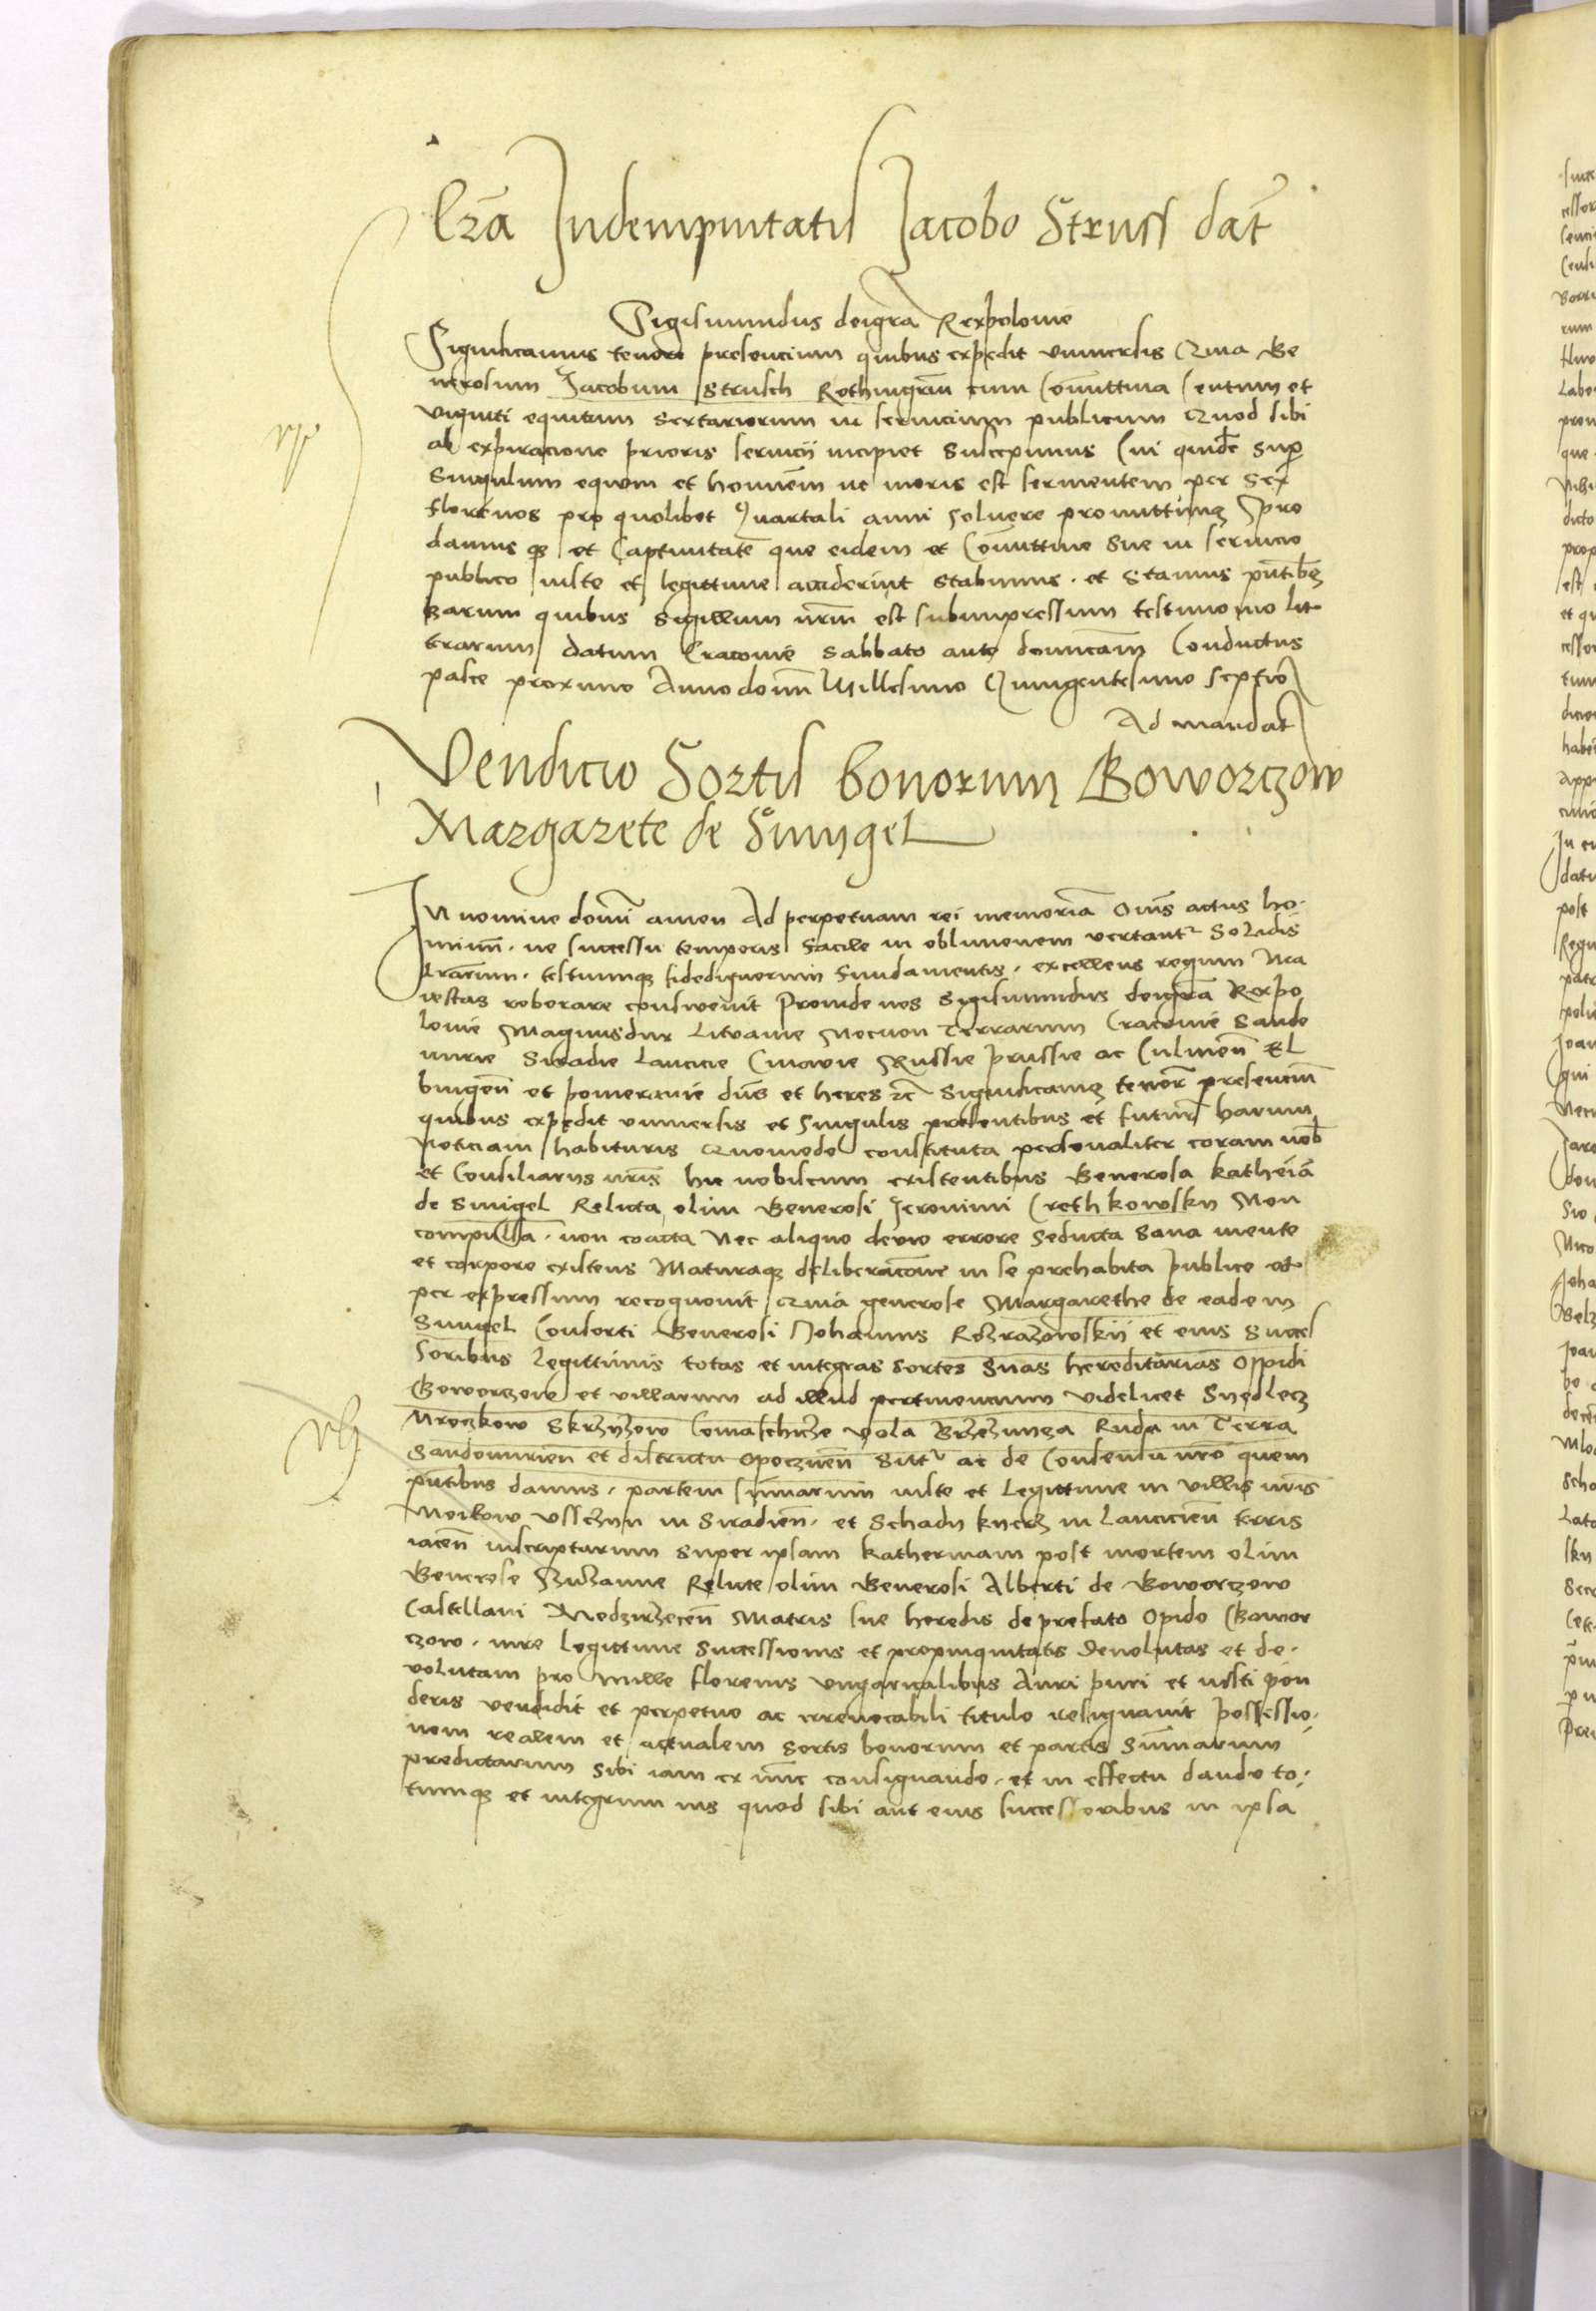 Lr̄a Indempnitatis Jacobo Struss dat̄
Sigismundus deigr̄a Rex polonie
Significamus tenore presencium quibus expedit vniuersis Quia Ge
nerosum Jacobum Strusch Rothmgr̄m cum Com̄ittiua Centum et
viginti equitum Sextariorum in seruicium publicum Quod sibi
ab expiracione prioris seruicij incipiet Suscepimus Cui quid̄e Sup̄
Singulum equum et homin̄em ut moris est seruientem per Sex
florenos pro quolibet Quartali anni soluere promittimꝫ Pro
damnis qꝫ et Captiuitate que eidem et Com̄ittiue Sue in seruicio
publico iuste et legittime acciderint Stabimus . et Stamus pn̄tibꝫ
harum quibus Sigillum nr̄m est subimpressum testimonio lit
terarum Datum Cracouie Sabbato ante dominicam Conductus
pasce proximo Anno domī Millesimo Quingentesimo Septio
Ad mandat̄
Vendicio Sortis bonorum Goworczow
Margarete de Smygel
In nomine domī amen Ad perpetuam rei memoriā Om̄s actus ho-
minū . ne successu temporis facile in obliuionem vertant᷑ Solidis
lr̄arum . testiumqꝫ fidedignorum fundamentis . excellens regum Ma
iestas roborare consweuit Proinde nos Sigismundus deigr̄a Rex po
lonie Magnusdux Litvanie Necnon Terrarum Cracouie Sando
mirie Siradie Lancicie Cuiavie Russie prussie ac Culmen̄ El
bingen̄ et pomeranie dn̄s et heres ꝛc̄ Significamꝫ tenor̄ presenciū
quibus expedit vniuersis et Singulis presentibus et futur̄ harum
noticiam habituris Quomodo constituta personaliter coram nob̄
et Consiliarijs nr̄is hic nobiscum existentibus Generosa Katheīa
de Smigel Relicta olim Generosi Jeronimi Crethkowsky Non
compulsa . non coacta Nec aliquo devio errore Seducta Sana mente
et corpore existens Maturaqꝫ deliberac̄one in se prehabita publice et
per expressum recognouit Quia generose Margarethe de eadem
Smigel Consorti Generosi Johannis Rozrazowskij et eius Succes
soribus Legittimis totas et integras Sortes Suas hereditarias Oppidi
Goworczow et villarum ad illud pertinencium videlicet Snedlecz
Mroczkow Skrzyszow Comaschicze Vola Brzezinsza Ruda in Terra
Sandomirien̄ et districtu opoczuen̄ Sitt᷑ ac de Consensu nr̄o quem
pn̄tibus damus . partem sum̄arum iuste et Legittime in villis nr̄is
Moikow Vssczyn in Siradien̄ . et Schady Knerz in Lancicien̄ terris
iacen̄ inscriptarum Super ipsam Katherinam post mortem olim
Generose Szuzanne Relicte olim Generosi Alberti de Goworczow
Castellani Medzirzecen̄ Matris sue heredis de prefato Opido Gowor
czow . iure Legittime Successionis et propinquitatis Deuolutas et de-
volutam pro Mille florenis vngaricalibus Auri puri et iusti pon
deris vendidit et perpetuo ac irreuocabili titulo resignauit possessio-
nem realem et actualem Sortis bonorum et partis Sum̄arum
predictarum Sibi iam ex nūc consignando . et in effectu dando to-
tumqꝫ et integrum ius quod sibi aut eius successoribus in ipsa